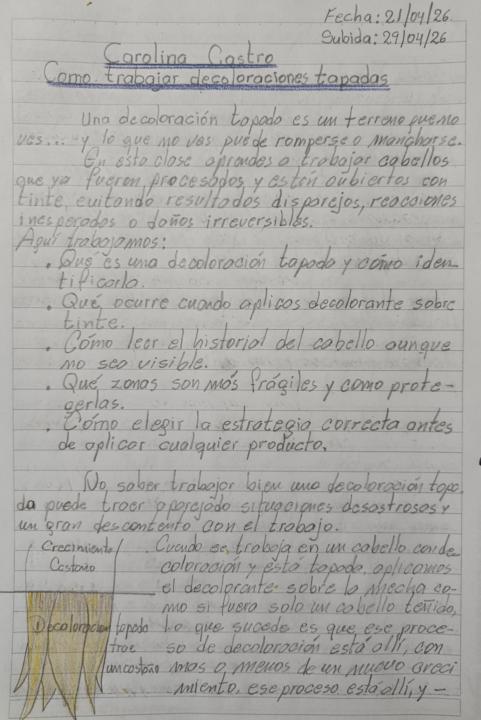 Fecha: 21/04/26.
Subida: 29/04/26
Carolina Castro
Como trabajar decoloraciones tapadas
Una decoloración tapada es un terreno que no
ves... y lo que no ves puede romperse o mancharse.
En esta clase aprendes a trabajar cabellos
que ya fueron procesados y están cubiertos con
tinte, evitando resultados disparejos, reacciones
inesperadas o daños irreversibles.
Aquí trabajamos:
• Qué es una decoloración tapada y cómo iden-
tificarla.
• Qué ocurre cuando aplicas decolorante sobre
tinte.
• Cómo leer el historial del cabello aunque
no sea visible.
• Qué zonas son más frágiles y como prote-
gerlas.
• Cómo elegir la estrategia correcta antes
de aplicar cualquier producto.
No saber trabajar bien una decoloración tapa
da puede traer aparejado situaciones desastrosas y
un gran descontento con el trabajo.
Crecimiento
Castaño
Decoloracion tapada
trae
un castaño
Cuando se trabaja en un cabello con de
coloración y está tapada, aplicamos
el decolorante sobre la mecha co-
mo si fuera solo un cabello teñido,
lo que sucede es que ese proce-
so de decoloración está allí, con
mas o menos de un nuevo creci
miento, ese proceso está allí, y -